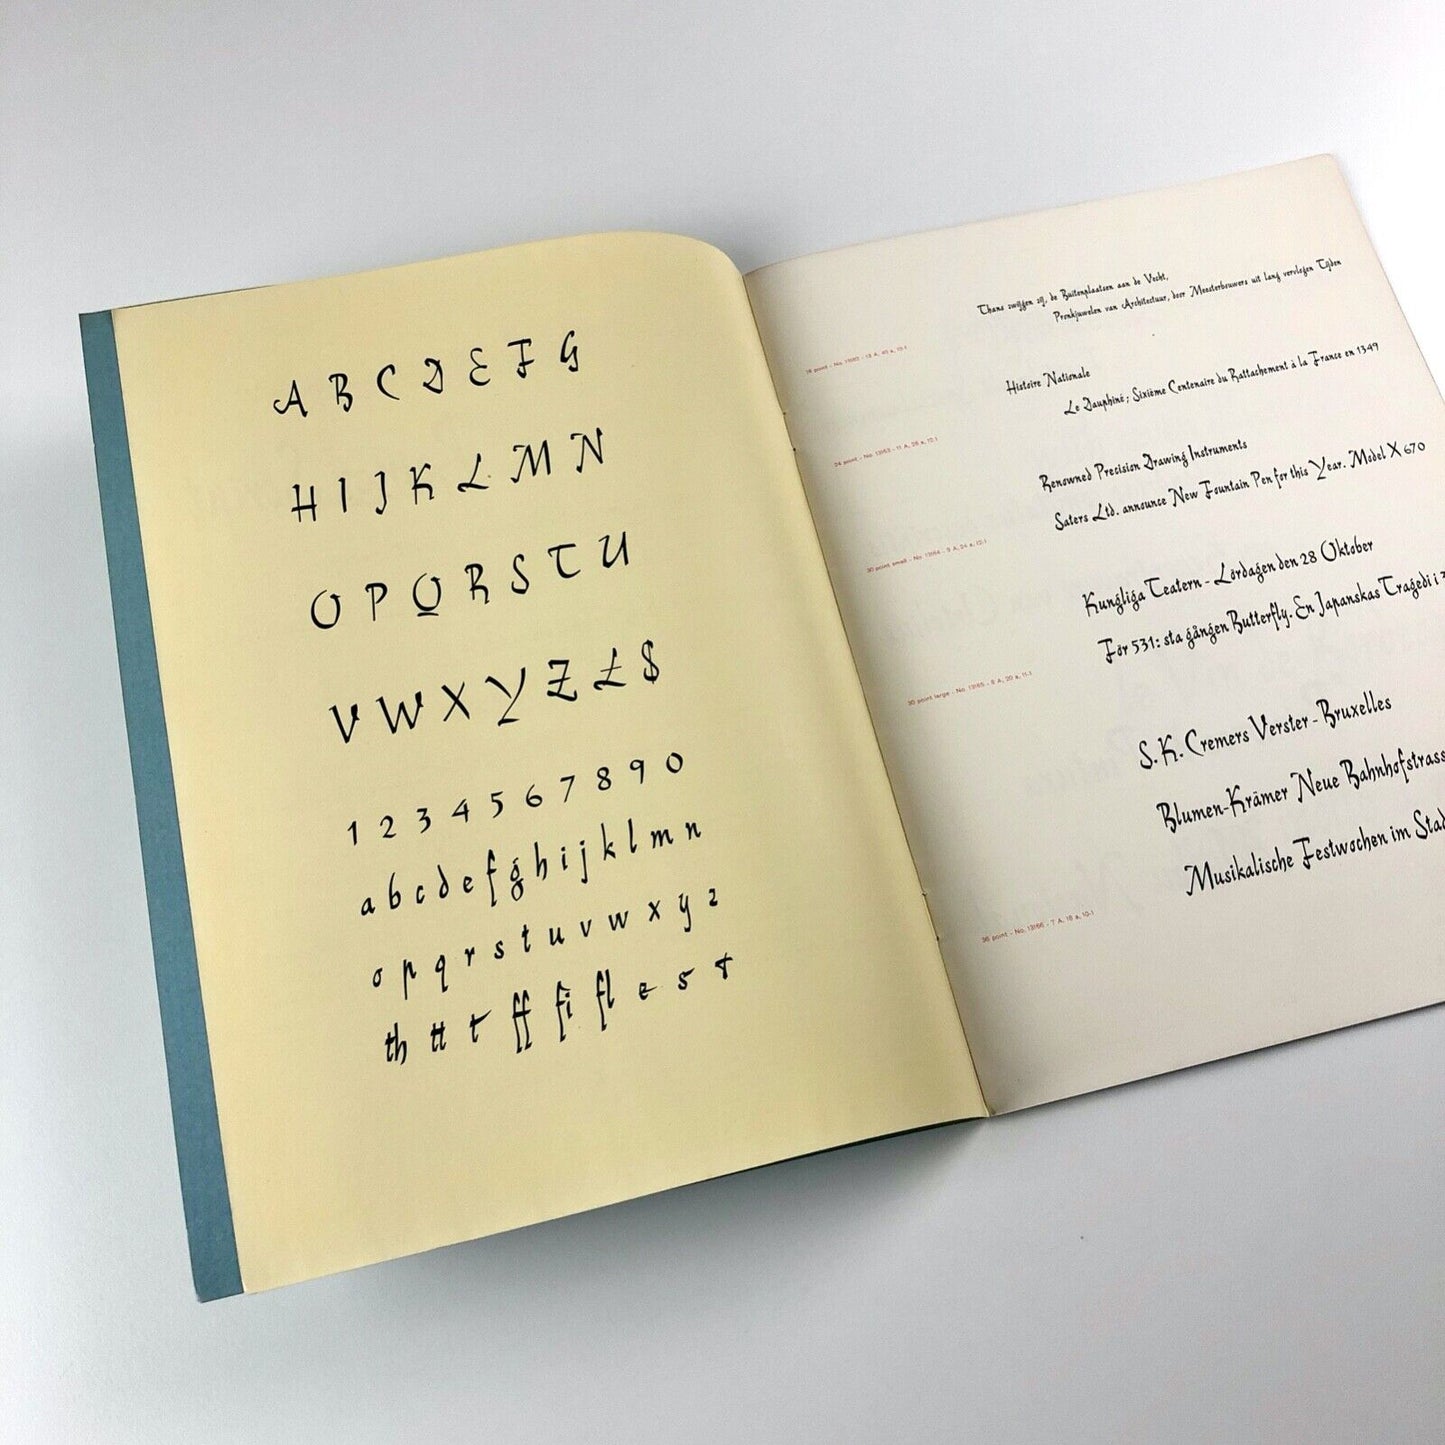 A B C D E F G
H I J K L M N
O P Q R S T U
V W X Y Z £ $
1 2 3 4 5 6 7 8 9 0
a b c d e f g h i j k l m n
o p q r s t u v w x y z
th tt t ff fi fl e s t
Thans zwijgen zij, de Buitenplaatsen aan de Vecht,
Pronkjuwelen van Architectuur, door Meesterbouwers uit lang vervlogen Tijden
18 point - No. 13162 - 13 A, 40 a, 13-1
Histoire Nationale
Le Dauphiné; Sixième Centenaire du Rattachement à la France en 1349
24 point - No. 13163 - 11 A, 28 a, 12-1
Renowned Precision Drawing Instruments
Saters Ltd. announce New Fountain Pen for this Year. Model X 670
30 point small - No. 13164 - 9 A, 24 a, 12-1
Kungliga Teatern - Lördagen den 28 Oktober
För 531: sta gången Butterfly. En Japanskas Tragedi i 3
30 point large - No. 13165 - 8 A, 20 a, 11-1
S. K. Cremers Verster - Bruxelles
Blumen-Krämer Neue Bahnhofstrass
Musikalische Festwochen im Stad
36 point - No. 13166 - 7 A, 18 a, 10-1